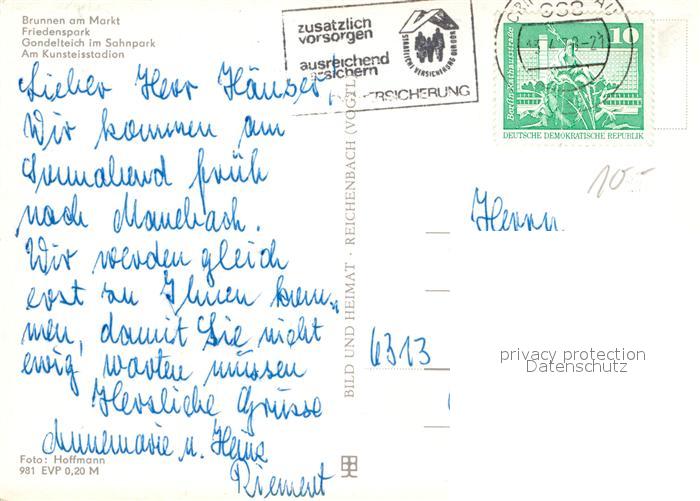 Brunnen am Markt
Friedenspark
Gondelteich im Sahnpark
Am Kunsteisstadion
Lieber Herr Häuser,
Wir kommen am
Sonnabend früh
nach Manebach.
Wir werden gleich
erst zu Ihnen kom-
men, damit Sie nicht
ewig warten müssen
Herzliche Grüsse
Annemarie u. Heinz
Foto: Hoffmann
981 EVP 0,20 M
BILD UND HEIMAT · REICHENBACH (VOGTL
zusätzlich
vorsorgen
ausreichend
STAATLICHE VERSICHERUNG DER DDR
ERSICHERUNG
10
Berlin, Rathausstraße
DEUTSCHE DEMOKRATISCHE REPUBLIK
10.-
Herrn
6313
privacy protection
Datenschutz